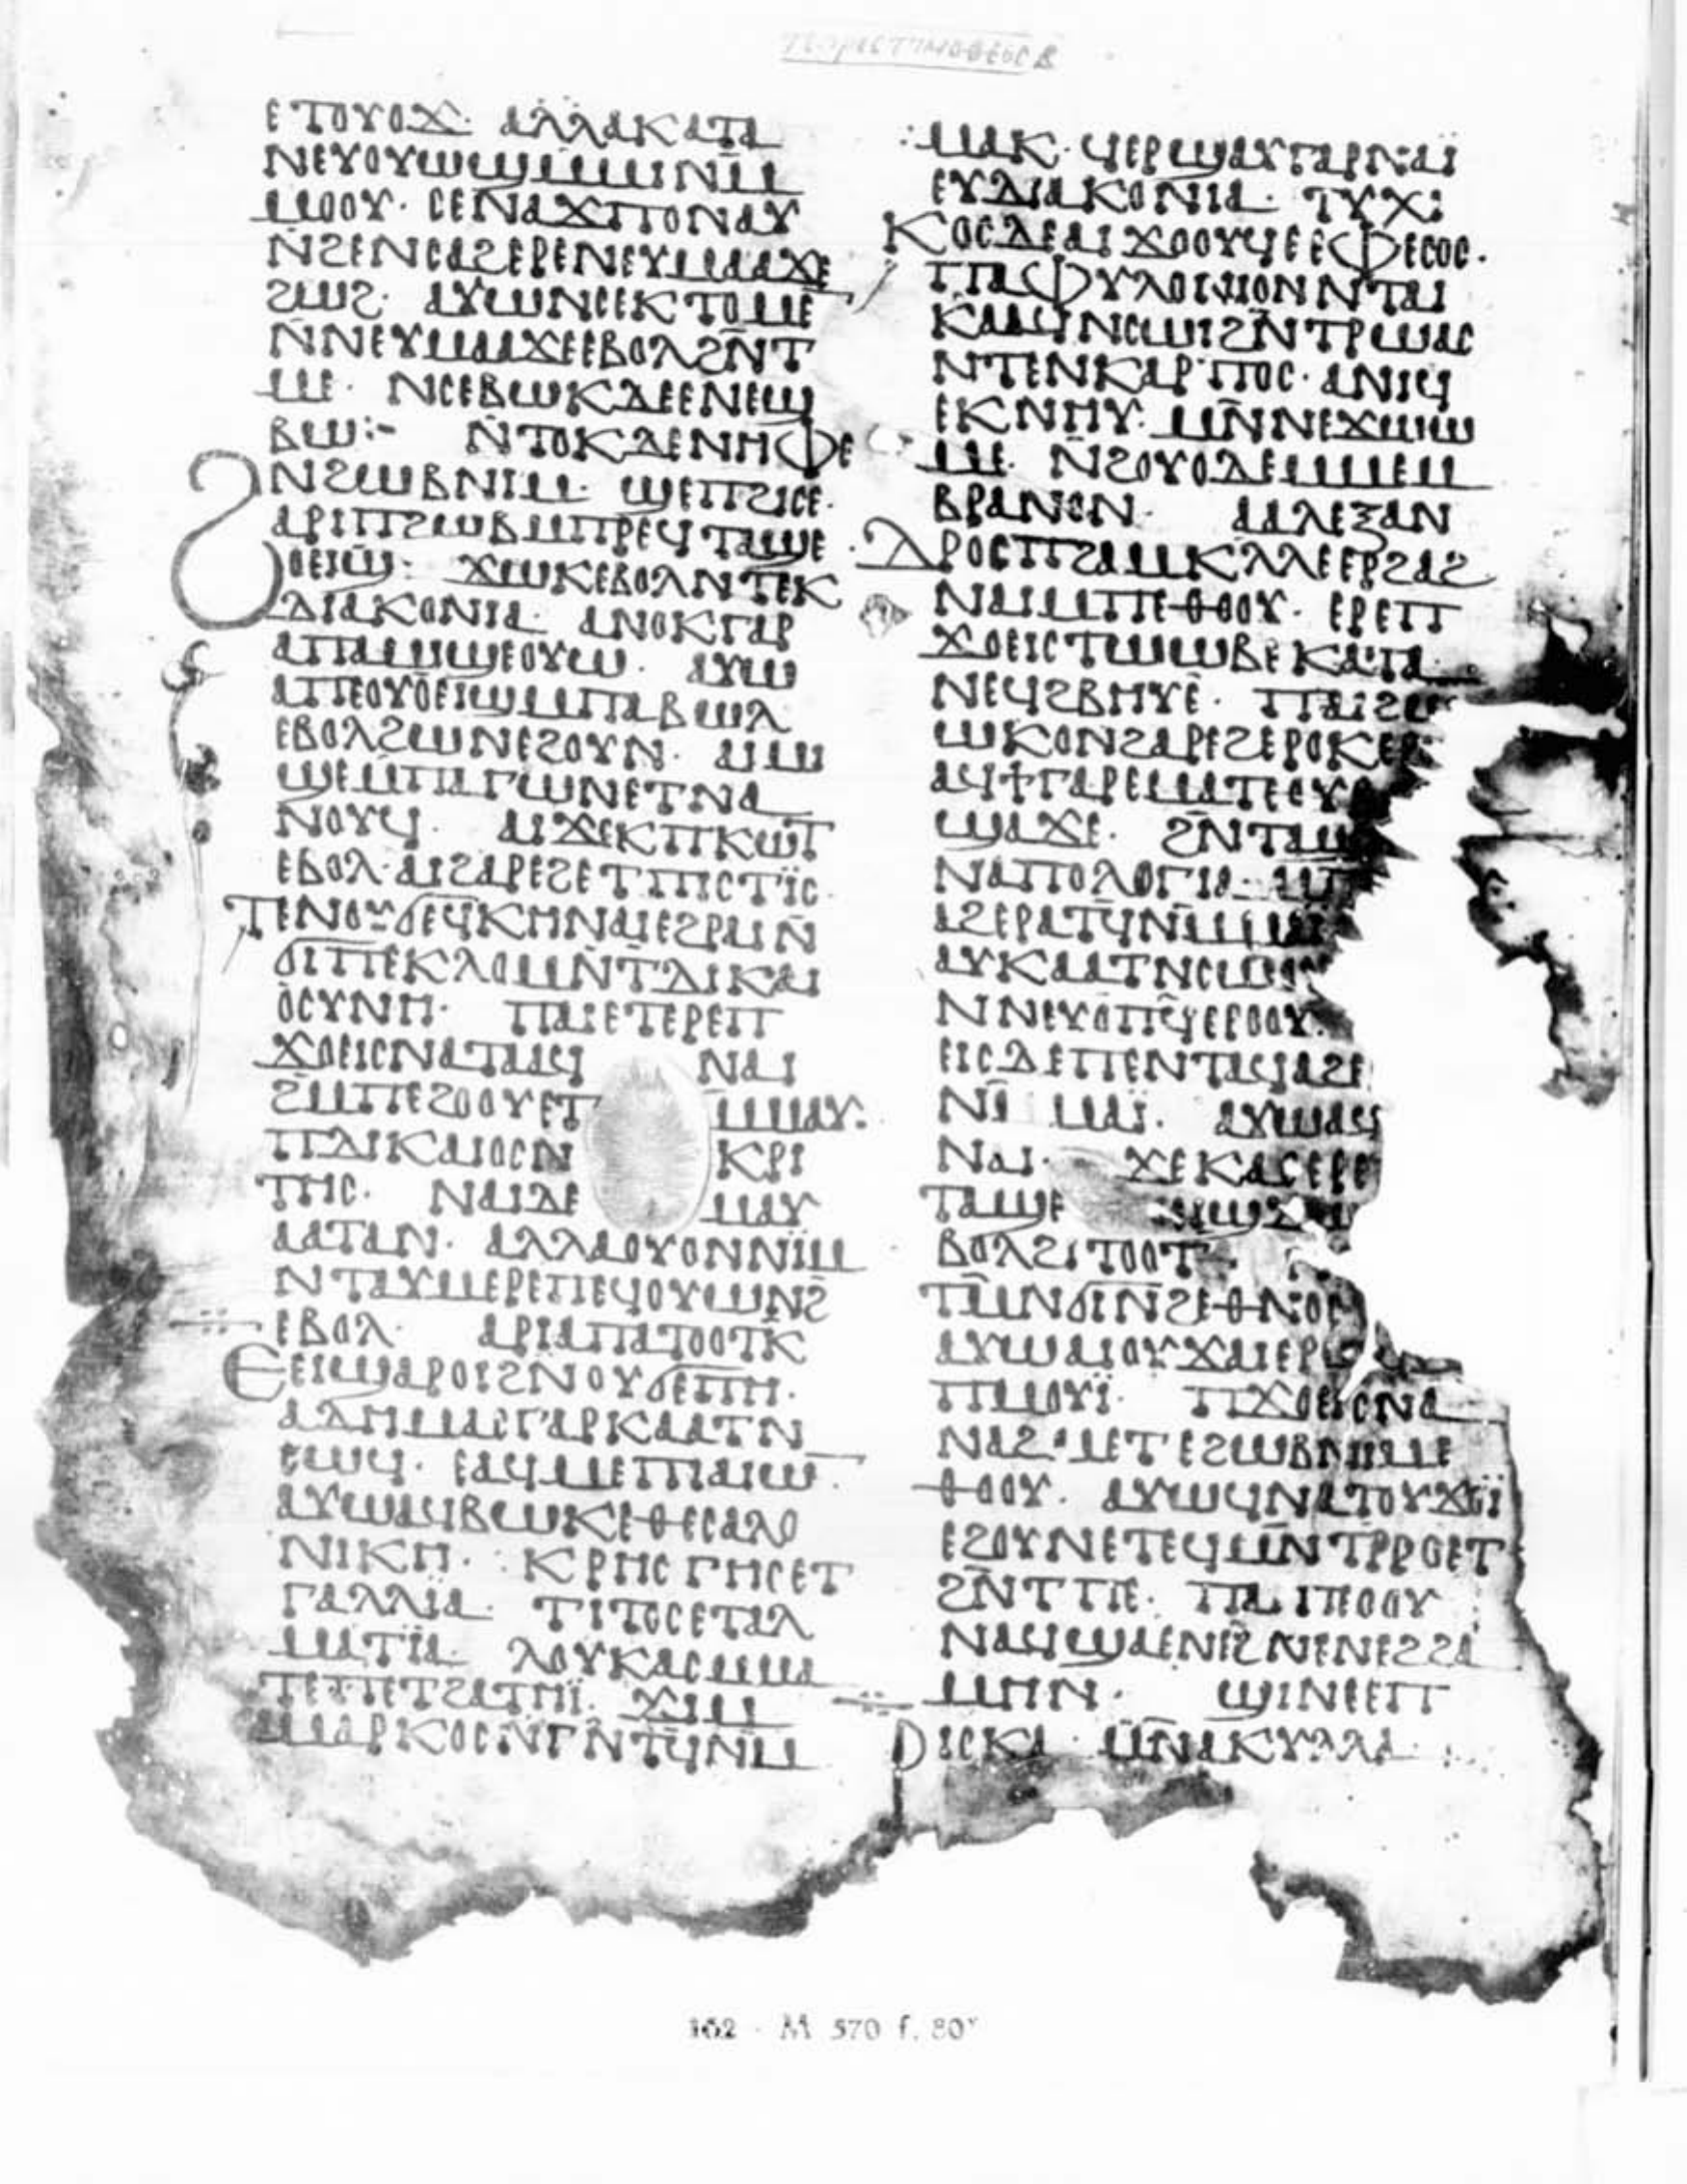 ⲉⲧⲟⲩⲟϫ· ⲁⲗⲗⲁⲕⲁⲧⲁ
ⲛⲉⲩⲟⲩⲱϣⲙⲙⲓⲛⲙ̄
ⲙⲟⲟⲩ· ⲥⲉⲛⲁϫⲡⲟⲛⲁⲩ
ⲛ̄ϩⲉⲛⲥⲁϩⲉⲣⲉⲛⲉⲩⲙⲁⲁϫⲉ
ϩⲱϩ· ⲁⲩⲱⲛⲥⲉⲕⲧⲟⲙⲉ
ⲛ̄ⲛⲉⲩⲙⲁⲁϫⲉⲉⲃⲟⲗϩⲛ̄ⲧ
ⲙⲉ· ⲛⲥⲉⲃⲱⲕⲇⲉⲉⲛⲉϣ
ⲃⲱ:- ⲛ̄ⲧⲟⲕⲇⲉⲛⲏⲫⲉ
ϩⲛϩⲱⲃⲛⲓⲙ· ϣⲉⲡϩⲓⲥⲉ·
ⲁⲣⲓⲡϩⲱⲃⲙⲡⲣⲉϥⲧⲁϣⲉ
ⲟⲉⲓϣ: ϫⲱⲕⲉⲃⲟⲗⲛⲧⲉⲕ
ⲇⲓⲁⲕⲟⲛⲓⲁ· ⲁⲛⲟⲕⲅⲁⲣ
ⲁⲡⲁⲙⲓϣⲉⲟⲩⲱ· ⲁⲩⲱ
ⲁⲡⲉⲟⲩⲟⲉⲓϣⲙⲡⲁⲃⲱⲗ
ⲉⲃⲟⲗϩⲱⲛⲉϩⲟⲩⲛ· ⲁⲓⲙⲓ
ϣⲉⲙ̄ⲡⲁⲅⲱⲛⲉⲧⲛⲁ
ⲛⲟⲩϥ· ⲁⲓϫⲉⲕⲡⲕⲱⲧ
ⲉⲃⲟⲗ·ⲁⲓϩⲁⲣⲉϩⲉⲧⲡⲓⲥⲧⲓ̈ⲥ·
ⲧⲉⲛⲟⲩϭⲉϥⲕⲏⲛⲁⲓⲉϩⲣⲁⲓⲛ̄
ϭⲓⲡⲉⲕⲗⲟⲙⲛ̄ⲧⲇⲓⲕⲁⲓ
ⲟⲥⲩⲛⲏ· ⲡⲁⲓⲉⲧⲉⲣⲉⲡ
ϫⲟⲉⲓⲥⲛⲁⲧⲁⲁϥ ⲛⲁⲓ
ϩⲙ̄ⲡⲉϩⲟⲟⲩⲉⲧ ⲙ̄ⲙⲁⲩ·
ⲡⲇⲓⲕⲁⲓⲟⲥⲛ ⲕⲣⲓ
ⲧⲏⲥ· ⲛⲁⲓⲇⲉ ⲙⲁⲩ
ⲁⲁⲧⲁⲛ· ⲁⲗⲗⲁⲟⲩⲟⲛⲛⲓ̄ⲙ
ⲛⲧⲁⲩⲙⲉⲣⲉⲡⲉϥⲟⲩⲱⲛϩ̄
ⲉⲃⲟⲗ· ⲁⲣⲓⲁⲡⲁⲧⲟⲟⲧⲕ
ⲉⲉⲓϣⲁⲣⲟⲓϩⲛⲟⲩϭⲉⲡⲏ·
ⲁⲇⲏⲙⲁⲥⲅⲁⲣⲕⲁⲁⲧⲛ
ⲥⲱϥ· ⲉⲁϥⲙⲉⲡⲉⲓⲁⲓⲱⲛ
ⲁⲩⲱⲁϥⲃⲱⲕⲉⲑⲉⲥⲁⲗⲟ
ⲛⲓⲕⲏ· ⲕⲣⲏⲥⲅⲏⲥⲉⲧ
ⲅⲁⲗⲗⲓ̈ⲁ· ⲧⲓⲧⲟⲥⲉⲧⲇⲁⲗ
ⲙⲁⲧⲓ̈ⲁ· ⲗⲟⲩⲕⲁⲥⲙⲙⲁ
ⲧⲉϥⲡⲉⲧϩⲁⲧⲏⲓ̈· ϫⲓⲙ
ⲙⲁⲣⲕⲟⲥⲛ̄ⲅⲛ̄ⲧϥ̄ⲛⲙ̄
ⲙⲁⲕ· ϥⲉⲣϣⲁⲩⲅⲁⲣⲛⲁⲓ̈
ⲉⲩⲇⲓⲁⲕⲟⲛⲓⲁ· ⲧⲩⲭⲓ
ⲕⲟⲥⲇⲉⲁⲓϫⲟⲟⲩϥⲉⲉⲫⲉⲥⲟⲥ·
ⲡⲁⲫⲩⲗⲟⲛⲓⲟⲛⲛⲧⲁⲓ
ⲕⲁⲁϥⲛⲥⲱⲓϩⲛ̄ⲧⲣⲱⲁⲥ
ⲛⲧⲉⲛⲕⲁⲣⲡⲟⲥ· ⲁⲛⲓϥ
ⲉⲕⲛⲏⲩ· ⲙⲛ̄ⲛⲉϫⲱⲱ
ⲙⲉ· ⲛ̄ϩⲟⲩⲟⲇⲉⲙⲙⲉⲙ
ⲃⲣⲁⲛⲟⲛ· ⲁⲁⲗⲉⲝⲁⲛ
ⲇⲣⲟⲥⲡϩⲁⲙⲕⲗⲗⲉⲉⲣϩⲁϩ
ⲛⲁⲓⲙⲡⲉⲑⲟⲟⲩ· ⲉⲣⲉⲡ
ϫⲟⲉⲓⲥⲧⲱⲱⲃⲉⲕⲁⲧⲁ
ⲛⲉϥϩⲃⲏⲩⲉ· ⲡⲁⲓϩⲱ
ⲱⲕⲟⲛϩⲁⲣⲉϩⲉⲣⲟⲕⲉⲣ
ⲁϥϯⲅⲁⲣⲉⲙⲁⲧⲉⲟⲩⲃ
ϣⲁϫⲉ· ϩⲛⲧⲁϣ
ⲛⲁⲡⲟⲗⲟⲅⲓⲁ· ⲙⲡ
ⲁϩⲉⲣⲁⲧϥ̄ⲛⲙ̄ⲙⲁ
ⲁⲩⲕⲁⲁⲧⲛⲥⲱⲟⲩ
ⲛⲛⲉⲩⲟⲡϥ̄ⲉⲣⲟⲟⲩ·
ⲉⲓⲥⲇⲉⲡⲉⲛⲧⲁϥⲁϩⲉ
ⲛⲙ̄ ⲙⲁⲓ̈· ⲁⲩⲱⲁϥ
ⲛⲁⲓ· ϫⲉⲕⲁⲥⲉⲣⲉ
ⲧⲁϣⲉ
ⲃⲟⲗϩⲓⲧⲟⲟⲧ
ⲧⲙ̄ⲛϭⲓⲛϩⲉⲑⲛⲟⲥ
ⲁⲩⲱⲁⲓⲟⲩϫⲁⲓⲉⲣ
ⲡⲙⲟⲩⲓ̈· ⲡϫⲟⲉⲓⲥⲛⲁ
ⲛⲁϩⲙⲉⲧⲉϩⲱⲃⲛⲓⲙⲙⲉ
ⲑⲟⲟⲩ· ⲁⲩⲱϥⲛⲁⲧⲟⲩϫⲉⲓ̈
ⲉϩⲟⲩⲛⲉⲧⲉϥⲙⲛ̄ⲧⲣ̄ⲣⲟⲉⲧ
ϩⲛ̄ⲧⲡⲉ· ⲡⲁⲓⲡⲉⲟⲟⲩ
ⲛⲁϥϣⲁⲉⲛⲉϩ̄ⲛⲉⲛⲉϩϩⲁ
ⲙⲏⲛ· ϣⲓⲛⲉⲉⲡ
ⲣⲓⲥⲕⲁ· ⲙⲛ̄ⲁⲕⲩⲗⲗⲁ·
162 · M 570 f. 80ᵛ